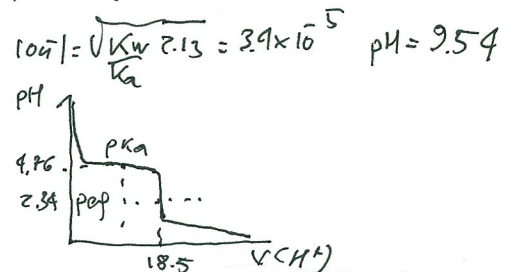 [OH⁻] = √(Kw/Ka 2.13) = 3.4×10⁻⁵ pH = 9.54
pH
4,76
pKa
2.34
18.5
V(H⁺)